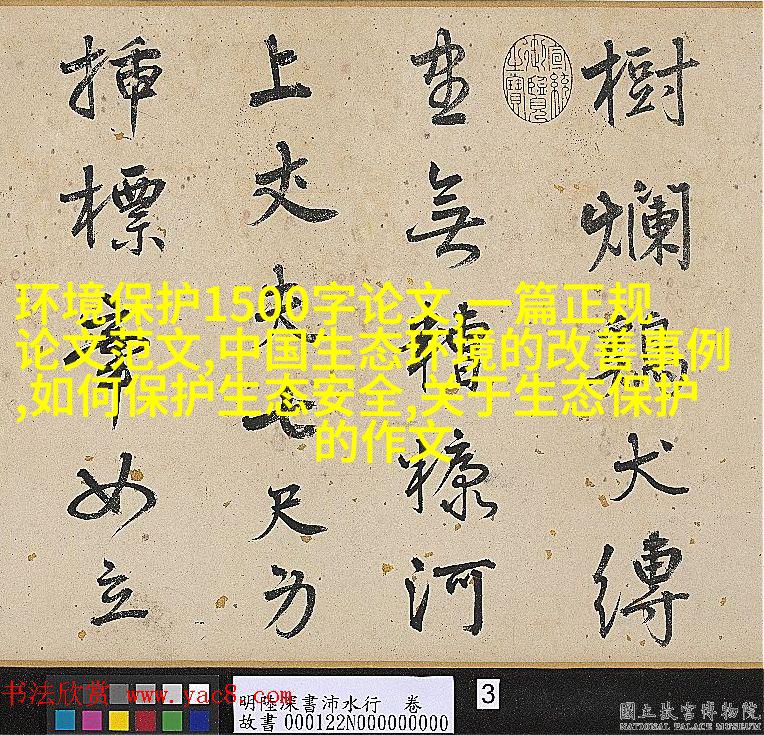 樹爛鷄犬縛
坐無糟糠河
上丈夫七尺
插標如立
宣統御覽之寶
环境保护1500字论文,一篇正规
论文范文,中国生态环境的改善事例
,如何保护生态安全,关于生态保护
的作文
书法欣赏 www.yac8.com
明陸深書沛水行 卷
故書000122N000000000
3
國立故宮博物院
NATIONAL PALACE MUSEUM